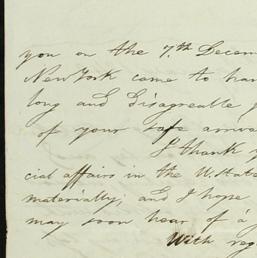 you on the 7.th Decem
New York came to han
long and disagreable
of your safe arriva
I thank y
cial affairs in the U. State
materially, and I hope
may soon hear of a
With reg